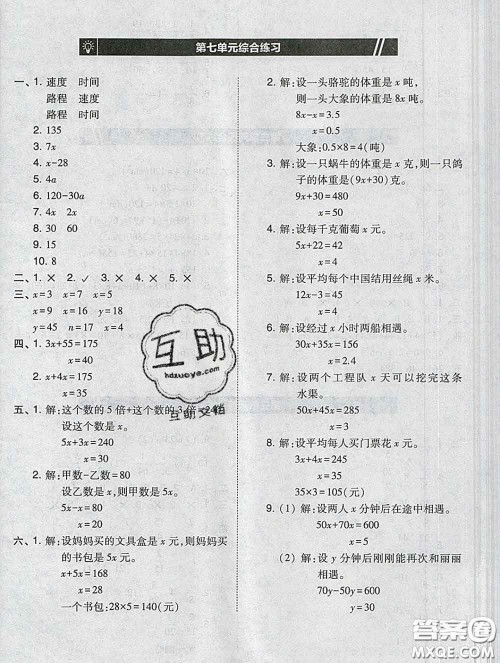 第七单元综合练习
一、1. 速度 时间
路程 速度
路程 时间
2. 135
3. 7x
4. x-28
5. 4a
6. 120-30a
7. 4x 2x
8. 30 60
9. 15
10. 8
二、1. × 2. ✓ 3. × 4. × 5. ×
三、x=3 x=7 x=5
x=9 x=16 y=18
y=45 n=17 x=8
四、1. 3x+55=175
x=40
2. x+35=115
x=80
五、1. 解:这个数的5倍+这个数的3倍=240
设这个数是x。
5x+3x=240
x=30
2. 解:甲数-乙数=80
设乙数是x,则甲数是5x。
5x-x=80
x=20
六、1. 解:设妈妈买的文具盒是x元,则妈妈买
的书包是5x元。
x+5x=168
x=28
一个书包:28×5=140(元)
2. 解:设一头骆驼的体重是x吨,
则一头大象的体重是8x吨。
8x-x=3.5
x=0.5
大象:0.5×8=4(吨)
3. 解:设一只蜗牛的体重是x克,则一只鸽
子的体重是(9x+30)克。
9x+30=480
x=50
4. 解:设每千克葡萄x元。
5x+22=42
x=4
5. 解:设平均每个中国结用丝绳x米。
12x-3=45
x=4
6. 解:设经过x小时两船相遇。
30x+35x=156
x=2.4
7. 解:设两个工程队x天可以挖完这条
水渠。
30x+24x=486
x=9
8. 解:设平均每人买门票花x元。
3x+4x=245
x=35
35×3=105(元)
9. (1) 解:设两人x分钟后在途中相遇。
50x+70x=600
x=5
(2) 解:设y分钟后刚刚能再次和丽丽
相遇。
70y-50y=600
y=30
互助
hdzuoye.com
互助文档
答案圈
MXQE.COM